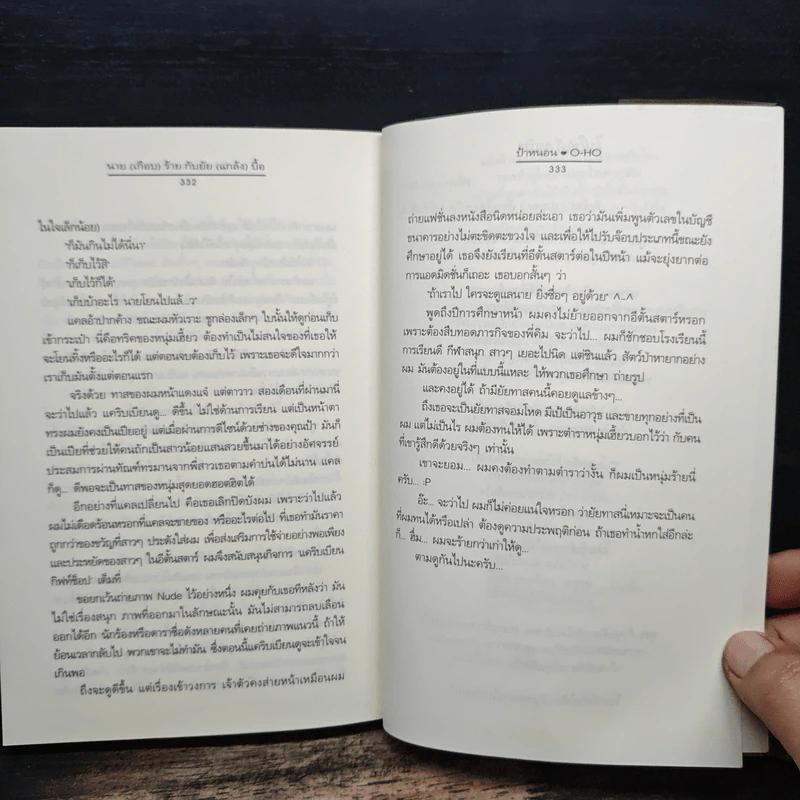 นาย (เกือบ) ร้าย กับยัย (แกล้ง) บื้อ
332
ในใจเล็กน้อย)
"ก็มันกินไม่ได้นี่นา"
"ก็เก็บไว้สิ"
"เก็บไว้ก็ได้"
"เก็บบ้าอะไร นายโยนไปแล้...ว"
แคลอ้าปากค้าง ขณะผมหัวเราะ ชูกล่องเล็กๆ ใบนั้นให้ดูก่อนเก็บ
เข้ากระเป๋า นี่คือทริคของหนุ่มเฮี้ยว ต้องทำเป็นไม่สนใจของที่เธอให้
จะโยนทิ้งหรืออะไรก็ได้ แต่ตอนจบต้องเก็บไว้ เพราะเธอจะดีใจมากกว่า
เราเก็บมันตั้งแต่ตอนแรก
จริงด้วย ทาสของผมหน้าแดงแจ๋ แต่ตาวาว สองเดือนที่ผ่านมานี่
จะว่าไปแล้ว แคริบเบียนดู... ดีขึ้น ไม่ใช่ด้านการเรียน แต่เป็นหน้าตา
ทรงผมยังคงเป็นเปียอยู่ แต่เมื่อผ่านการดีไซน์ด้วยช่างของคุณป้า มันก็
เป็นเปียที่ช่วยให้คนถักเป็นสาวน้อยแสนสวยขึ้นมาได้อย่างอัศจรรย์
ประสมการผ่านทัณฑ์ทรมานจากพี่สาวเธอตามคำบ่นได้ไม่นาน แคล
ก็ดู... ดีพอจะเป็นทาสของหนุ่มสุดยอดฮอตฮิตได้
อีกอย่างที่แคลเปลี่ยนไป คือเธอเลิกปิดบังผม เพราะว่าไปแล้ว
ผมไม่เดือดร้อนหรอกที่แคลจะขายของ หรืออะไรต่อไป ที่เธอทำมันราคา
ถูกกว่าของขวัญที่สาวๆ ประดังใส่ผม เพื่อส่งเสริมการใช้จ่ายอย่างพอเพียง
และประหยัดของสาวๆ ในอีตั้นสตาร์ ผมจึงสนับสนุนกิจการ 'แคริบเบียน
กิฟท์ช็อป' เต็มที่
ขอยกเว้นถ่ายภาพ Nude ไว้อย่างหนึ่ง ผมคุยกับเธอทีหลังว่า มัน
ไม่ใช่เรื่องสนุก ภาพที่ออกมาในลักษณะนั้น มันไม่สามารถลบเลือน
ออกได้อีก นักร้องหรือดาราชื่อดังหลายคนที่เคยถ่ายภาพแนวนี้ ถ้าให้
ย้อนเวลากลับไป พวกเขาจะไม่ทำมัน ซึ่งตอนนี้แคริบเบียนดูจะเข้าใจจน
เกินพอ
ถึงจะดูดีขึ้น แต่เรื่องเข้าวงการ เจ้าตัวคงส่ายหน้าเหมือนผม
ป้าหนอน O-HO
333
ถ่ายแฟชั่นลงหนังสือนิดหน่อยล่ะเอา เธอว่ามันเพิ่มพูนตัวเลขในบัญชี
ธนาคารอย่างไม่ตะขิดตะขวงใจ และเพื่อให้ไปรับจ๊อบประเภทนี้ขณะยัง
ศึกษาอยู่ได้ เธอจึงยังเรียนที่อีตั้นสตาร์ต่อในปีหน้า แม้จะยุ่งยากต่อ
การแอดมิดชั่นก็เถอะ เธอบอกสั้นๆ ว่า
"ถ้าเราไป ใครจะดูแลนาย ยิ่งซื่อๆ อยู่ด้วย" ^_^
พูดถึงปีการศึกษาหน้า ผมคงไม่ย้ายออกจากอีตั้นสตาร์หรอก
เพราะต้องสืบทอดภารกิจของพี่คิม จะว่าไป... ผมก็ชักชอบโรงเรียนนี้
การเรียนดี กีฬาสนุก สาวๆ เยอะไปนิด แต่ชินแล้ว สัตว์ป่าหายากอย่าง
ผม มันต้องอยู่ในที่แบบนี้แหละ ให้พวกเธอศึกษา ถ่ายรูป
และคงอยู่ได้ ถ้ามียัยทาสคนนี้คอยดูแลข้างๆ...
ถึงเธอจะเป็นยัยทาสจอมโหด มีเป้เป็นอาวุธ และขายทุกอย่างที่เป็น
ผม แต่ไม่เป็นไร ผมต้องทนให้ได้ เพราะตำราหนุ่มเฮี้ยวบอกไว้ว่า กับคน
ที่เขารู้สึกดีด้วยจริงๆ เท่านั้น
เขาจะยอม... ผมคงต้องทำตามตำราว่างั้น ก็ผมเป็นหนุ่มร้ายนี่
ครับ... :P
อ๊ะ... จะว่าไป ผมก็ไม่ค่อยแน่ใจหรอก ว่ายัยทาสนี่เหมาะจะเป็นคน
ที่ผมทนได้หรือเปล่า ต้องดูความประพฤติก่อน ถ้าเธอทำน้ำหกใส่อีกล่ะ
ก็... ฮื่ม... ผมจะร้ายกว่าเก่าให้ดู...
ตามดูกันไปนะครับ...